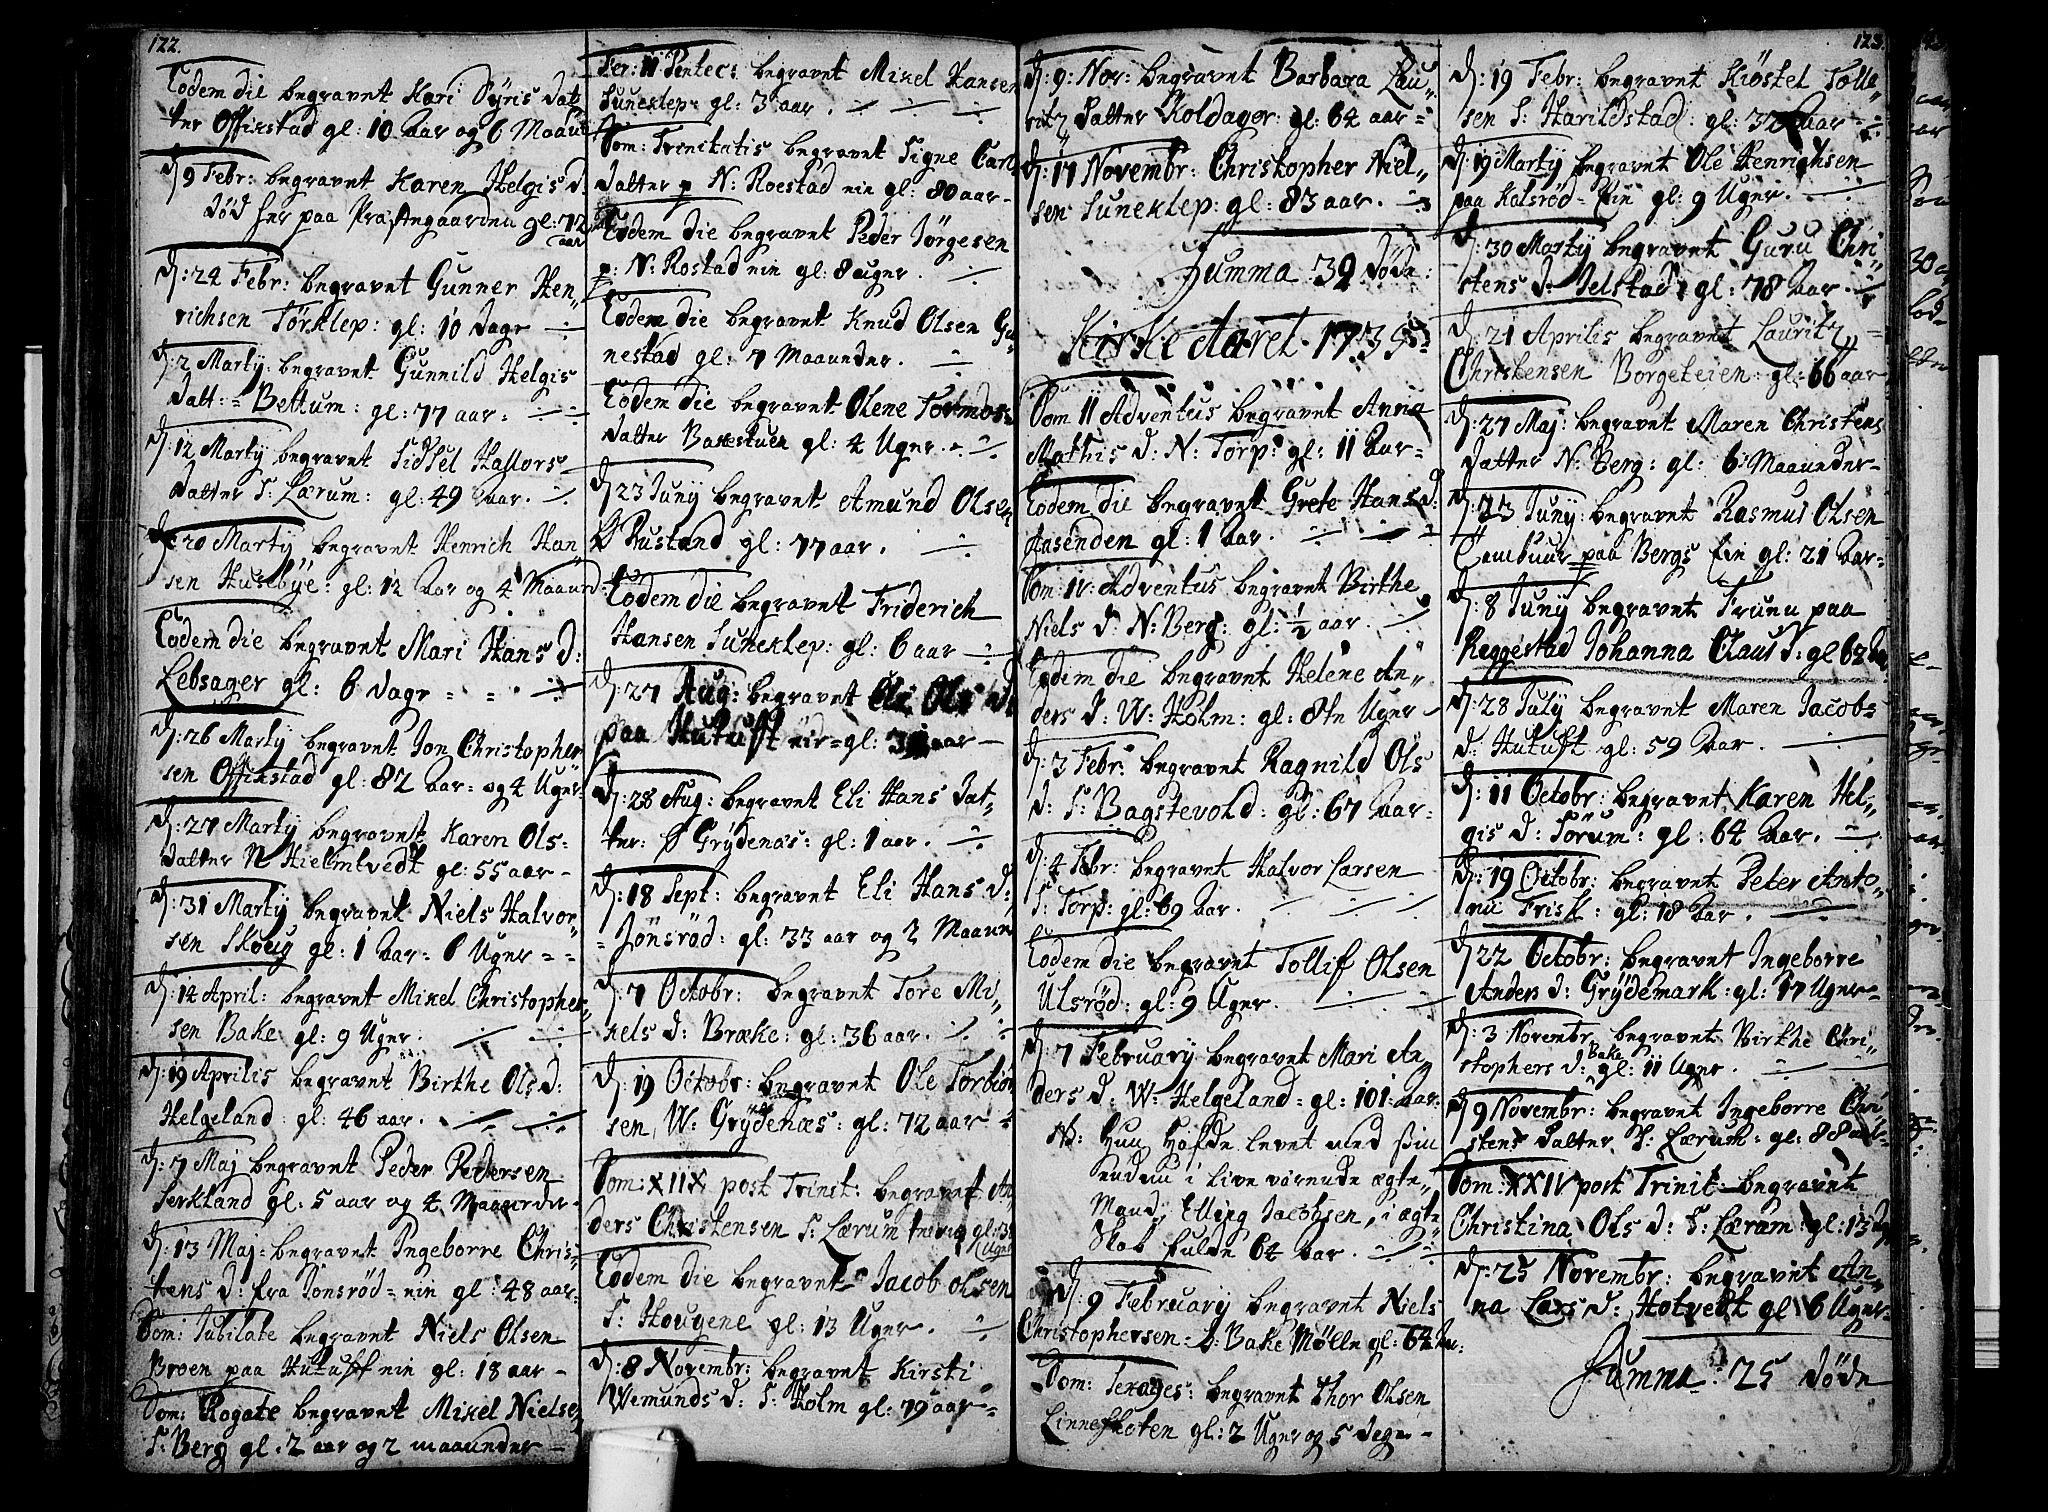 122.
Eodem die begravet Kari Syris dat
ter Offikstad gl: 10 Aar og 6 Maan
d 9 Febr: begravet Karen Helgis d.
død her paa Præstegaarden gl: 72
aar
d: 24 Febr: begravet Gunner Hen,,
richsen Törklep: gl: 10 dage ÷
d: 2 Martÿ: begravet Gunnild Helgis
datt:= Bettum: gl: 77 aar: ÷ ÷
d: 12 Martÿ begravet Sidsel Hallors
datter S: Lærum: gl: 49 aar. ÷
d: 20 Martÿ begravet Henrich Han,,
sen Husebÿe: gl: 12 Aar og 4 Maand
Eodem die begravet Mari Hans d:
Lebsager gl: 6 dage = = ÷
d: 26 Martÿ begravet Jon Christopher
sen Offikstad gl: 82 Aar= og 4 Uger
d: 27 Martÿ begravet Karen Ols=
datter N Hielmtvedt gl: 55 aar -
d: 31 Martÿ begravet Niels Halvor,,
sen Skoug gl: 1 Aar= 6 Uger = =
d: 14 April: begravet Mikel Christopher
sen Bake gl: 9 Uger. ÷ ÷
d: 19 Aprilis begravet Birthe Ols d:
Helgeland gl: 46 aar. ÷ ÷
d: 7 Maj begravet Peder Pedersen
Serkland gl: 5 aar og 4 Maaneder-
d: 13 Maj= begravet Ingeborre Chris,,
tens d: fra Jonsröd= eie gl: 48 aar:
Dom: Jubilate begravet Niels Olsen
Broen paa Hutuft eie gl: 18 aar -
Dom: Rogate begravet Mikel Nielsen
S: Berg gl: 2 aar og 2 maaneder -
Fer: II Pentec: begravet Mikel Hansen
Suneklep= gl: 3 aar. ÷ ÷ ÷
Dom: Trinitatis begravet Signe Carls
datter p N: Roestad eie gl: 80 aar-
Eodem die begravet Peder Jörgesen
p: N: Rostad eie gl: 8 uger. ÷
Eodem die begravet Knud Olsen Gu
nestad gl: 7 Maaneder. ÷
Eodem die begravet Olene Tormos=
datter Bakestuen gl: 4 Uger. - ÷
d 23 Junÿ begravet Amund Olsen
Ø Rustand gl: 77 aar. ÷
Eodem die begravet Friderich
Hansen Suneklep: gl: 6 aar ÷
d: 27 Aug: begravet Ols d
paa Hutuft eie= gl: aar -
d: 28 Aug: begravet Eli Hans dat,,
ter: Ø Grÿdenæs: gl: 1 aar. ÷
d: 18 Sept: begravet Eli Hans d:
= Jönsröd: gl: 33 aar og 2 Maan
d: 7 Octobr: begravet Tore Mi,,
kels d: Bræke: gl: 36 aar. ÷ ÷
d: 19 Octobr: begravet Ole Torbiön
sen, W: Grÿdenæs: gl: 72 aar ÷
Dom: XIIX post Trinit: begravet An
ders Christensen S: Lærum gl: 3
Uger
Eodem die begravet Jacob Olsen
S: Hougene gl: 13 Uger. ÷
d: 8 Novembr: begravet Kirsti
Wemunds d: S: Holm gl: 79 aar=
123.
d: 9: Nov: begravet Barbara Lau,,
ritz datter Koldager: gl: 64 aar =
d: 17 Novembr: Christopher Niel,,
sen Suneklep: gl: 83 aar. ÷
Summa 39 döde:
Kirke Aaret. 1735
Dom II Adventus begravet Anna
Mathis d: N: Torp: gl: 11 Aar=
Eodem die begravet Grete Hans d:
Aasenden gl: 1 Aar. ÷ ÷ ÷
Dom: IV: Adventus begravet Birthe
Niels d: N: Berg: gl: ½ aar. ÷
Eodem die begravet Helene An,,
ders d: W: Holm: gl: 8te Uger -
d: 3 Febr: begravet Ragnild Ols
d: S: Bagstevold: gl: 67 Aar=
d: 4 Febr: begravet Halvor Larsen
S: Torp: gl: 69 Aar. ÷ ÷ ÷
Eodem die begravet Tollif Olsen
Ulsröd: gl: 9 Uger. ÷ ÷
d: 7 Februarÿ begravet Mari An,,
ders d: W: Helgeland= gl: 101= Aar.
Nb: Hun hafde levet med sin
endnu i live værende ægte,,
Mand, Elling Jacobsen, i ægte
skab fulde 64 Aar. ÷ ÷
d: 9 Februarÿ begravet Niels
Christophersen= S: Bake Mölle gl: 64 Aar:
Dom: Sexages: begravet Thor Olsen
Linneskoten gl: 2 Uger og 5 dage -
d: 19 Febr: begravet Kiöstel Tolle,,
sen S: Harildstad: gl: Aar ÷
d: 19 Martÿ begravet Ole Henrichsen
paa Kolsröd= Eie gl: 9 Uger. ÷
d: 30 Martÿ begravet Guru Chri,,
stens d: Jelstad: gl: 78 Aar ÷
d: 21 Aprilis begravet Lauritz =
Christensen Borgeteien: gl: 66 aar
d: 27 Maj: begravet Maren Christens
datter N: Berg: gl: 6: Maaneder-
d: 23 Junÿ: begravet Rasmus Olsen
Tambuur paa Bergs Eie gl: 21 Aar=
d: 8 Junÿ begravet Fruen paa
Reggestad Johanna Claus d: gl 62 Aar
d: 28 Julÿ begravet Maren Jacobs
d: Hutuft gl: 59 Aar. ÷
d: 11 Octobr: begravet Karen Hel,,
gis d: Sörum: gl: 64 Aar. ÷
d: 19 Octobr: begravet Peter Anto,,
nii Frisk: gl: 18 Aar. ÷
d: 22 Octobr: begravet Ingeborre
Anders d: Grÿdemark: gl: 17 Uger=
d: 3 Novembr begravet Birthe Chri,,
Bake
stophers d: gl: 11 Uger. ÷ ÷
d 9 Novembr: begravet Ingeborre Chri
stens datter S: Lærum= gl: 88 aar
Dom: XXIV post Trinit begravet
Christina Ols d: S: Lærum: gl: 13 dage
d: 25 Novembr: begravet An,,
na Lars d: Hotvedt gl 6 Uger-
Summa: 25 döde